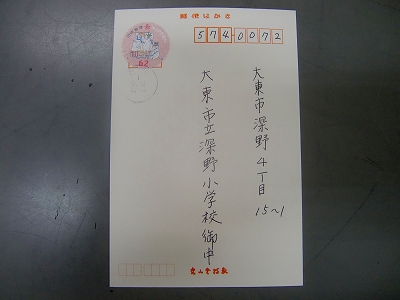 郵便はがき
574-0072
大東市深野4丁目
15〜1
大東市立深野小学校御中
62